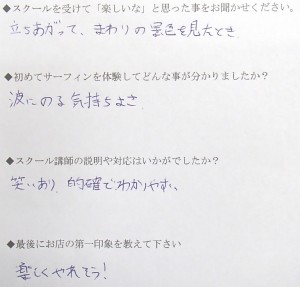 ◆スクールを受けて「楽しいな」と思った事をお聞かせください。
立ちあがって、まわりの景色を見たとき
◆初めてサーフィンを体験してどんな事が分かりましたか？
波にのる気持ちよさ
◆スクール講師の説明や対応はいかがでしたか？
笑いあり、的確でわかりやすい、
◆最後にお店の第一印象を教えて下さい
楽しくやれそう！